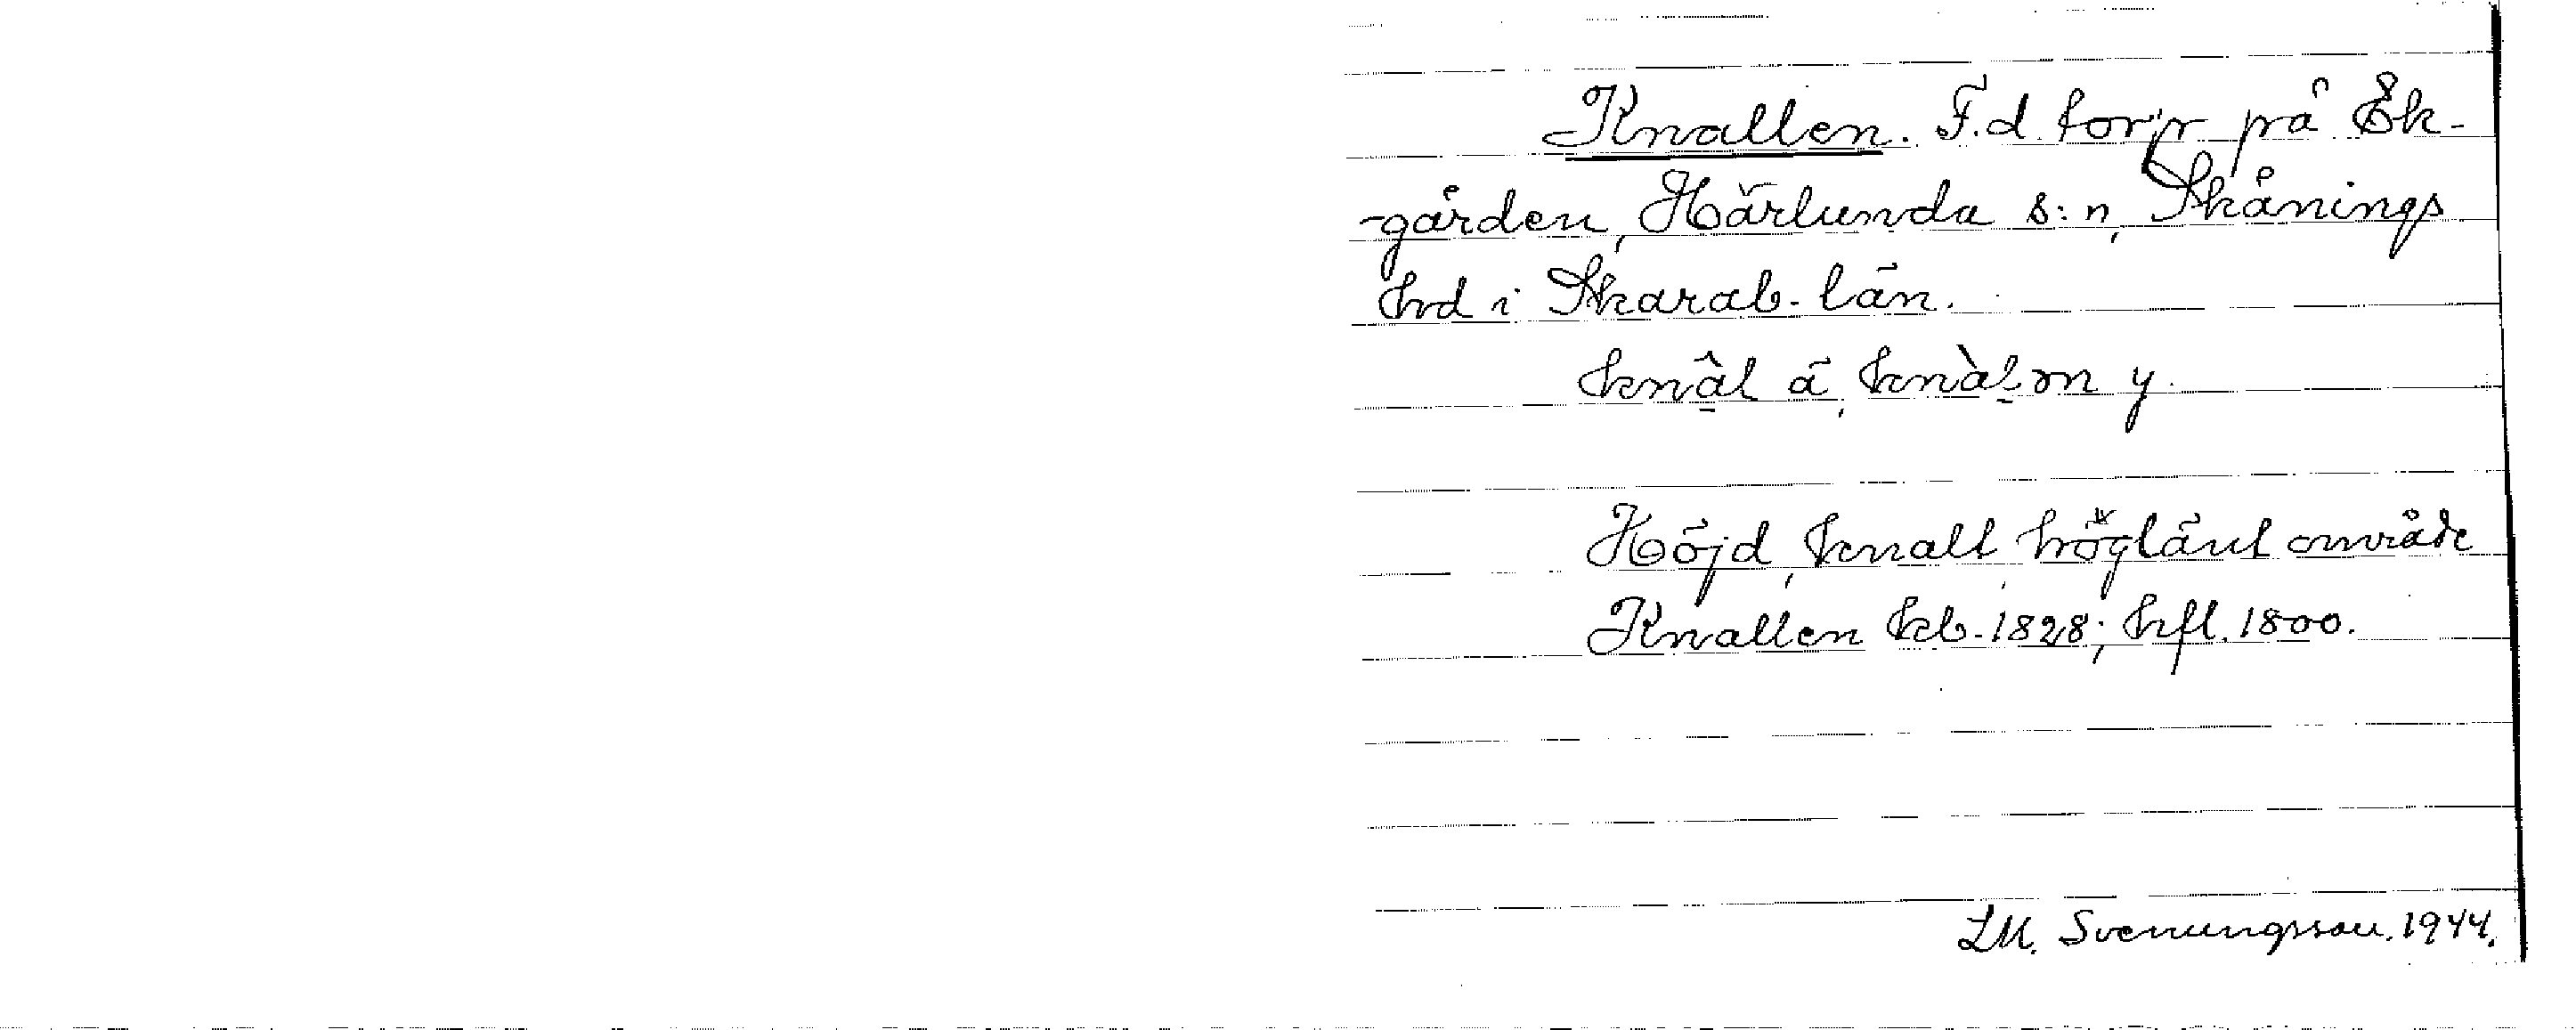 Knallen. F.d. torp på Ek-
-gården, Härlunda s:n, Skånings
hrd i Skarab. län.
knal ä, knàl̠ən y
Höjd, knall, höglänt område
Knallen kb. 1828; hfl. 1800.
LM. Svenungsson. 1944.